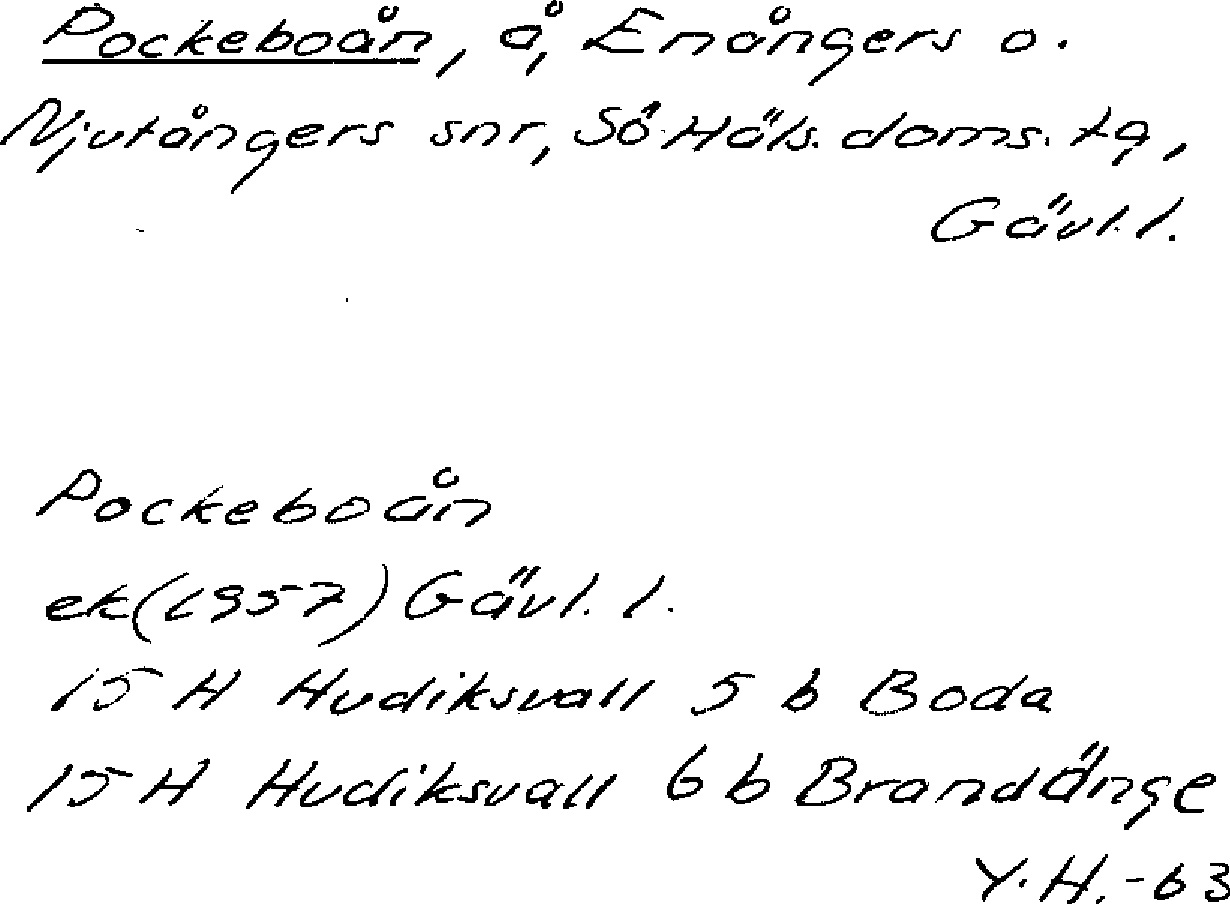 Pockeboån, å, Enångers o.
Njutångers snr, Sö Häls. doms. tg,
Gävl. l.
Pockeboån
ek (1957) Gävl. l.
15 H Hudiksvall 5 b Boda
15 H Hudiksvall 6 b Brandänge
Y. H. -63